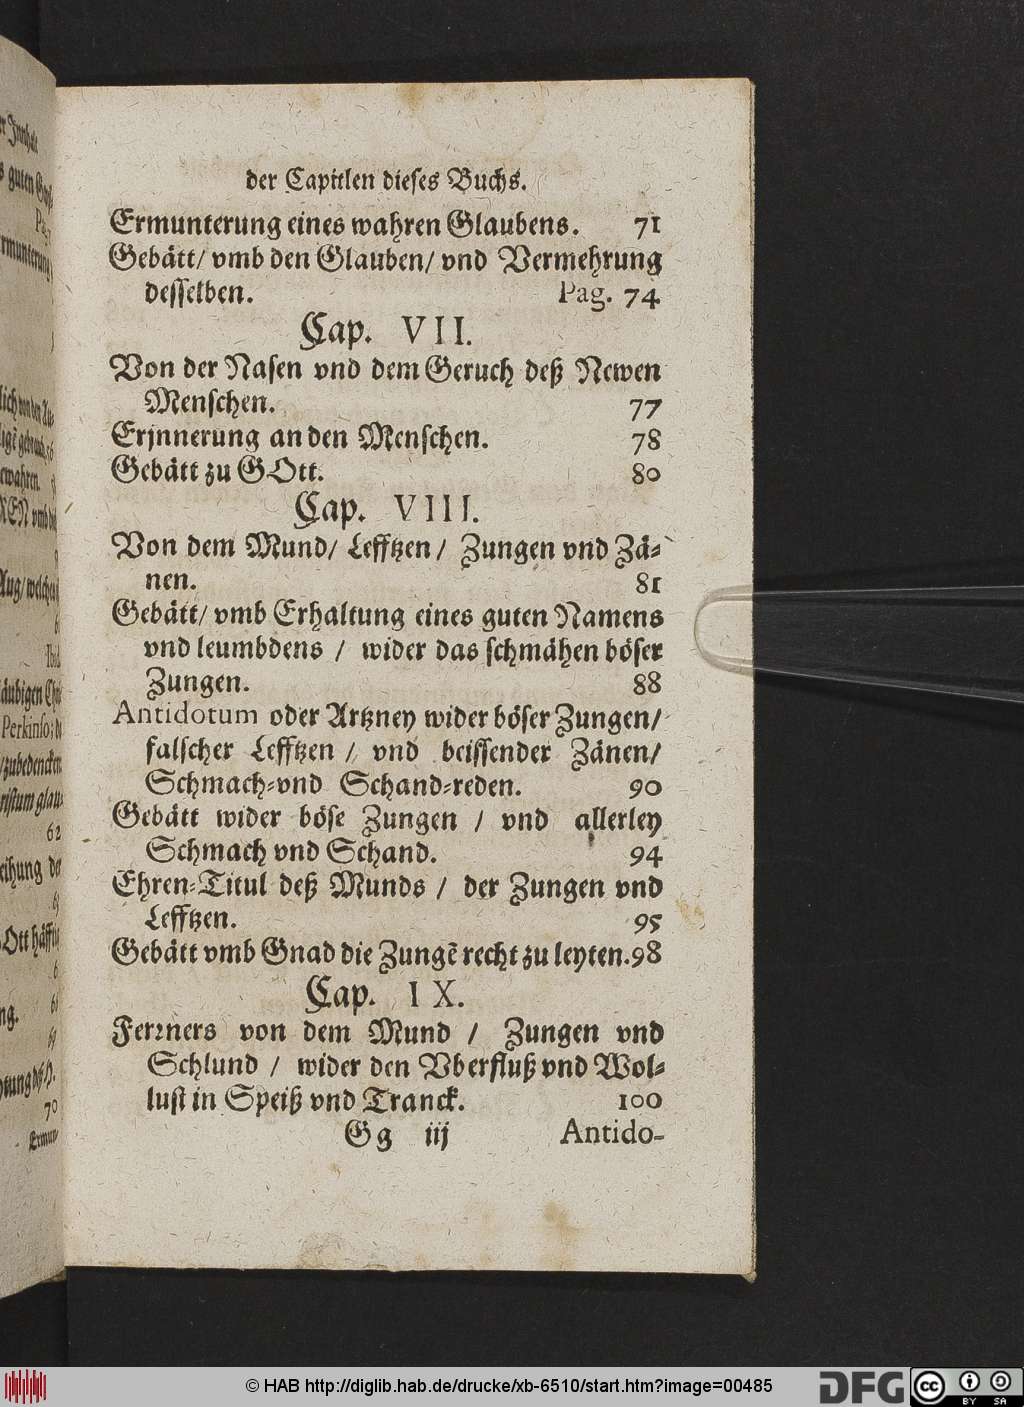 der Capitlen dieses Buchs.
Ermunterung eines wahren Glaubens. 71
Gebätt/ vmb den Glauben/ vnd Vermehrung
desselben. Pag. 74
Cap. VII.
Von der Nasen vnd dem Geruch deß Newen
Menschen. 77
Erjnnerung an den Menschen. 78
Gebätt zu GOtt. 80
Cap. VIII.
Von dem Mund/ Lefftzen/ Zungen vnd Zä-
nen. 81
Gebätt/ vmb Erhaltung eines guten Namens
vnd leumbdens / wider das schmähen böser
Zungen. 88
Antidotum oder Artzney wider böser Zungen/
falscher Lefftzen / vnd beissender Zänen/
Schmach-vnd Schand-reden. 90
Gebätt wider böse Zungen / vnd allerley
Schmach vnd Schand. 94
Ehren-Titul deß Munds / der Zungen vnd
Lefftzen. 95
Gebätt vmb Gnad die Zungẽ recht zu leyten. 98
Cap. IX.
Ferrners von dem Mund / Zungen vnd
Schlund / wider den Vberfluß vnd Wol-
lust in Speiß vnd Tranck. 100
Gg iij Antido-
© HAB http://diglib.hab.de/drucke/xb-6510/start.htm?image=00485
DFG
cc BY SA